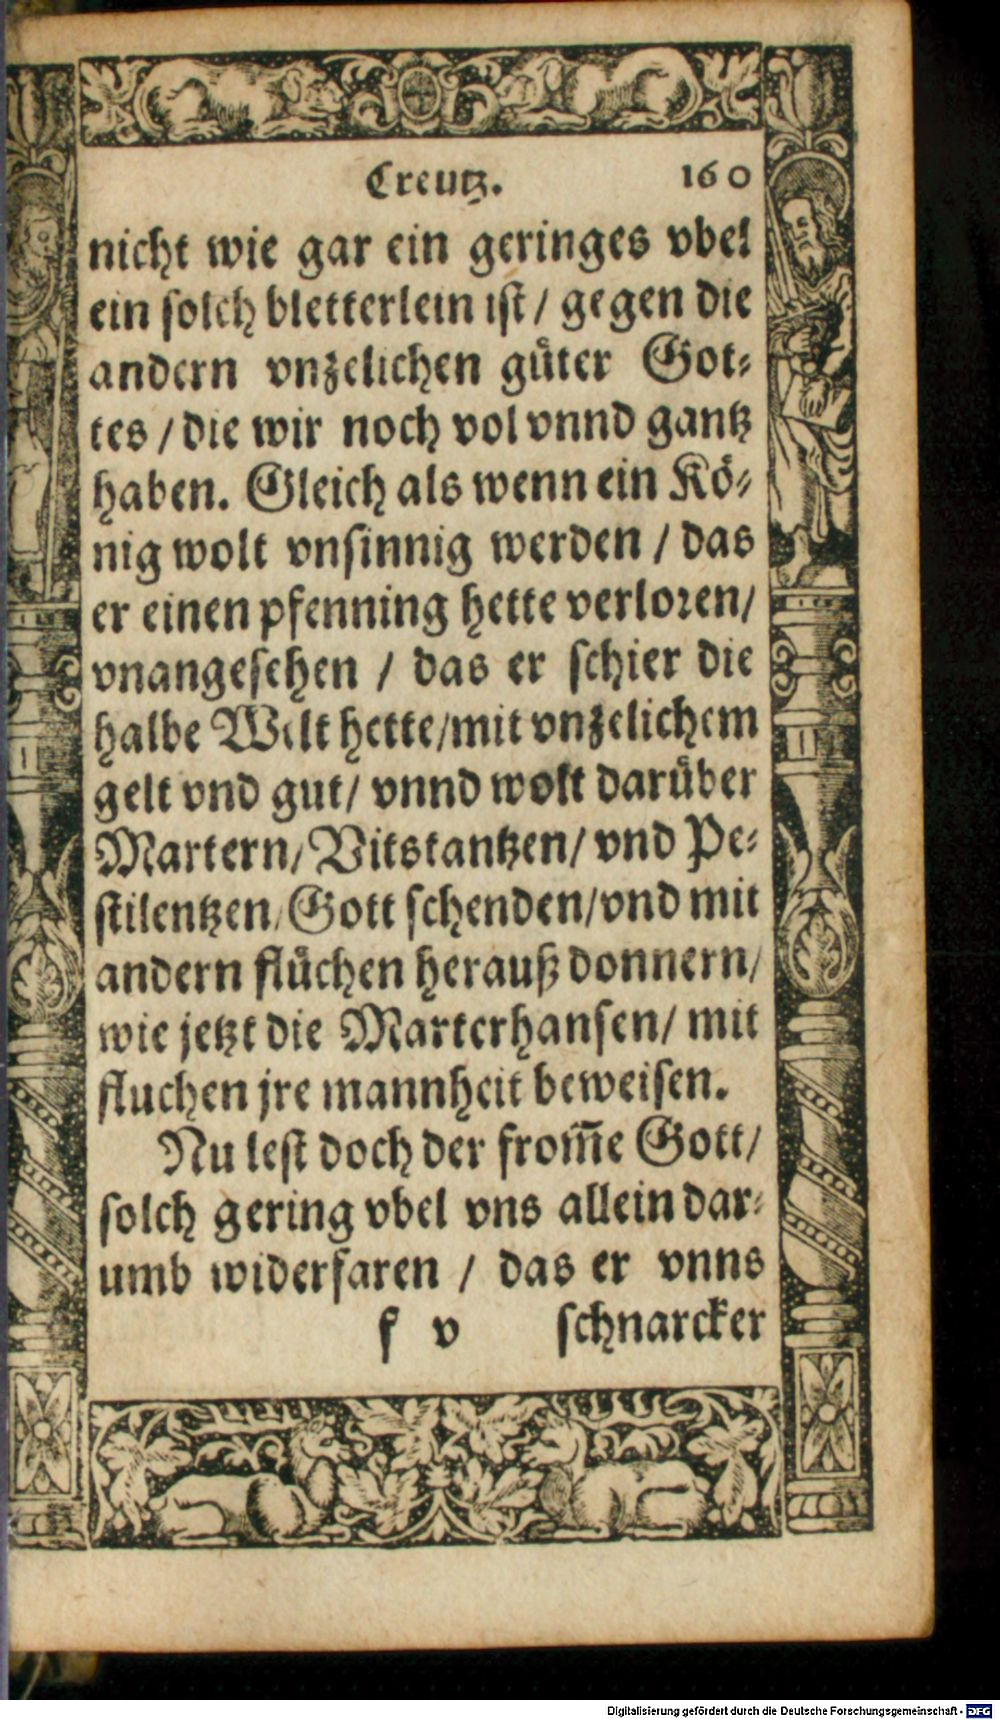 Creutz. 160
nicht wie gar ein geringes vbel
ein solch bletterlein ist / gegen die
andern vnzelichen guͤter Got⸗
tes / die wir noch vol vnnd gantz
haben. Gleich als wenn ein Koͤ⸗
nig wolt vnsinnig werden / das
er einen pfenning hette verloren/
vnangesehen / das er schier die
halbe Welt hette/mit vnzelichem
gelt vnd gut/ vnnd wolt daruͤber
Martern/ Vitstantzen/ vnd Pe⸗
stilentzen/ Gott schenden/vnd mit
andern fluͤchen herauß donnern/
wie jetzt die Marterhansen/ mit
fluchen jre mannheit beweisen.
Nu lest doch der from̅e Gott/
solch gering vbel vns allein dar⸗
umb widerfaren / das er vnns
f v schnarcker
Digitalisierung gefördert durch die Deutsche Forschungsgemeinschaft - DFG